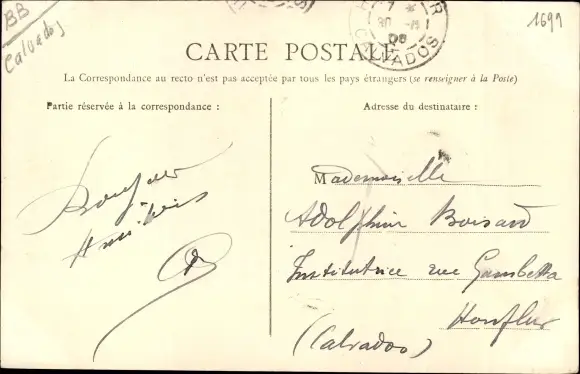 BB
Calvados
1699
CALVADOS
CARTE POSTALE
La Correspondance au recto n'est pas acceptée par tous les pays étrangers (se renseigner à la Poste)
Partie réservée à la correspondance :
Bonjour
Adresse du destinataire :
Mademoiselle
Adolphine Boisard
Institutrice rue Gambetta
Honfleur
(Calvados)